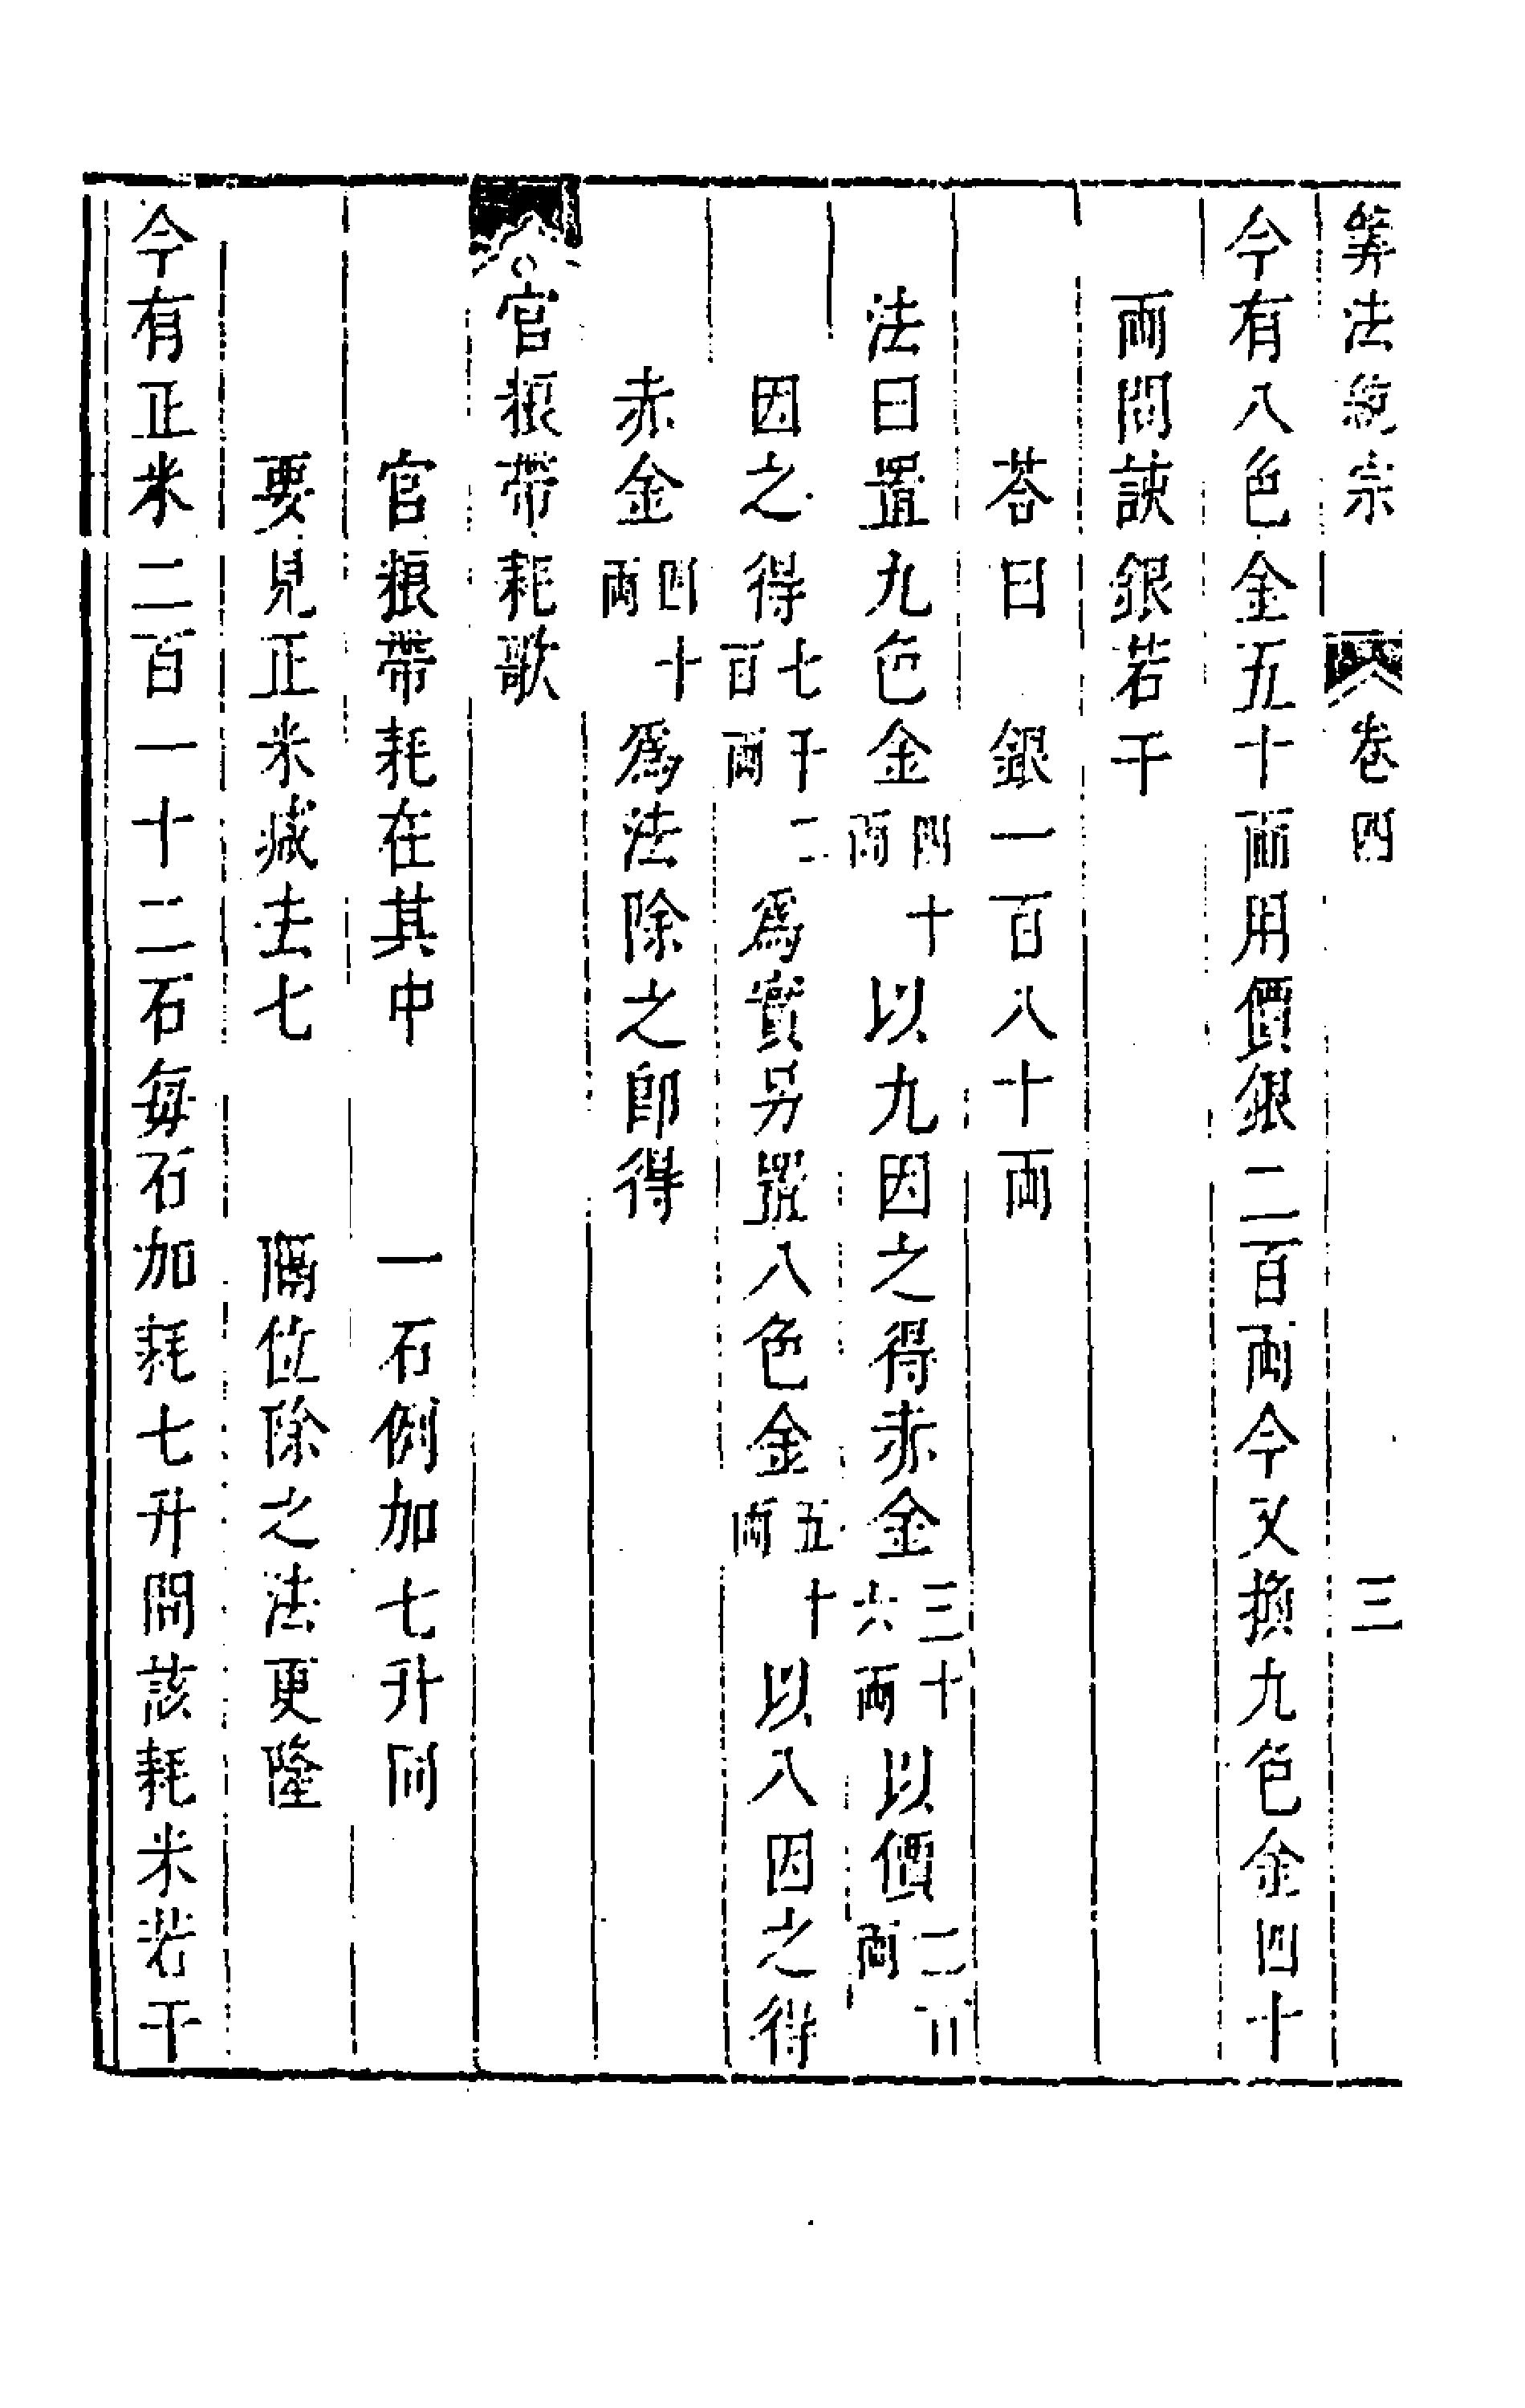 筭法統宗 卷四 三
今有八色金五十兩用價銀二百兩今又換九色金四十
兩問該銀若干
荅曰 銀一百八十兩
法曰置九色金四十兩以九因之得赤金三十六兩以價二百兩
因之得七千二百兩爲實另置八色金五十兩以八因之得
赤金四十兩爲法除之即得
○官粮帶耗歌
官粮帶耗在其中 一石例加七升同
要見正米减去七 隔位除之法更隆
今有正米二百一十二石每石加耗七升問該耗米若干